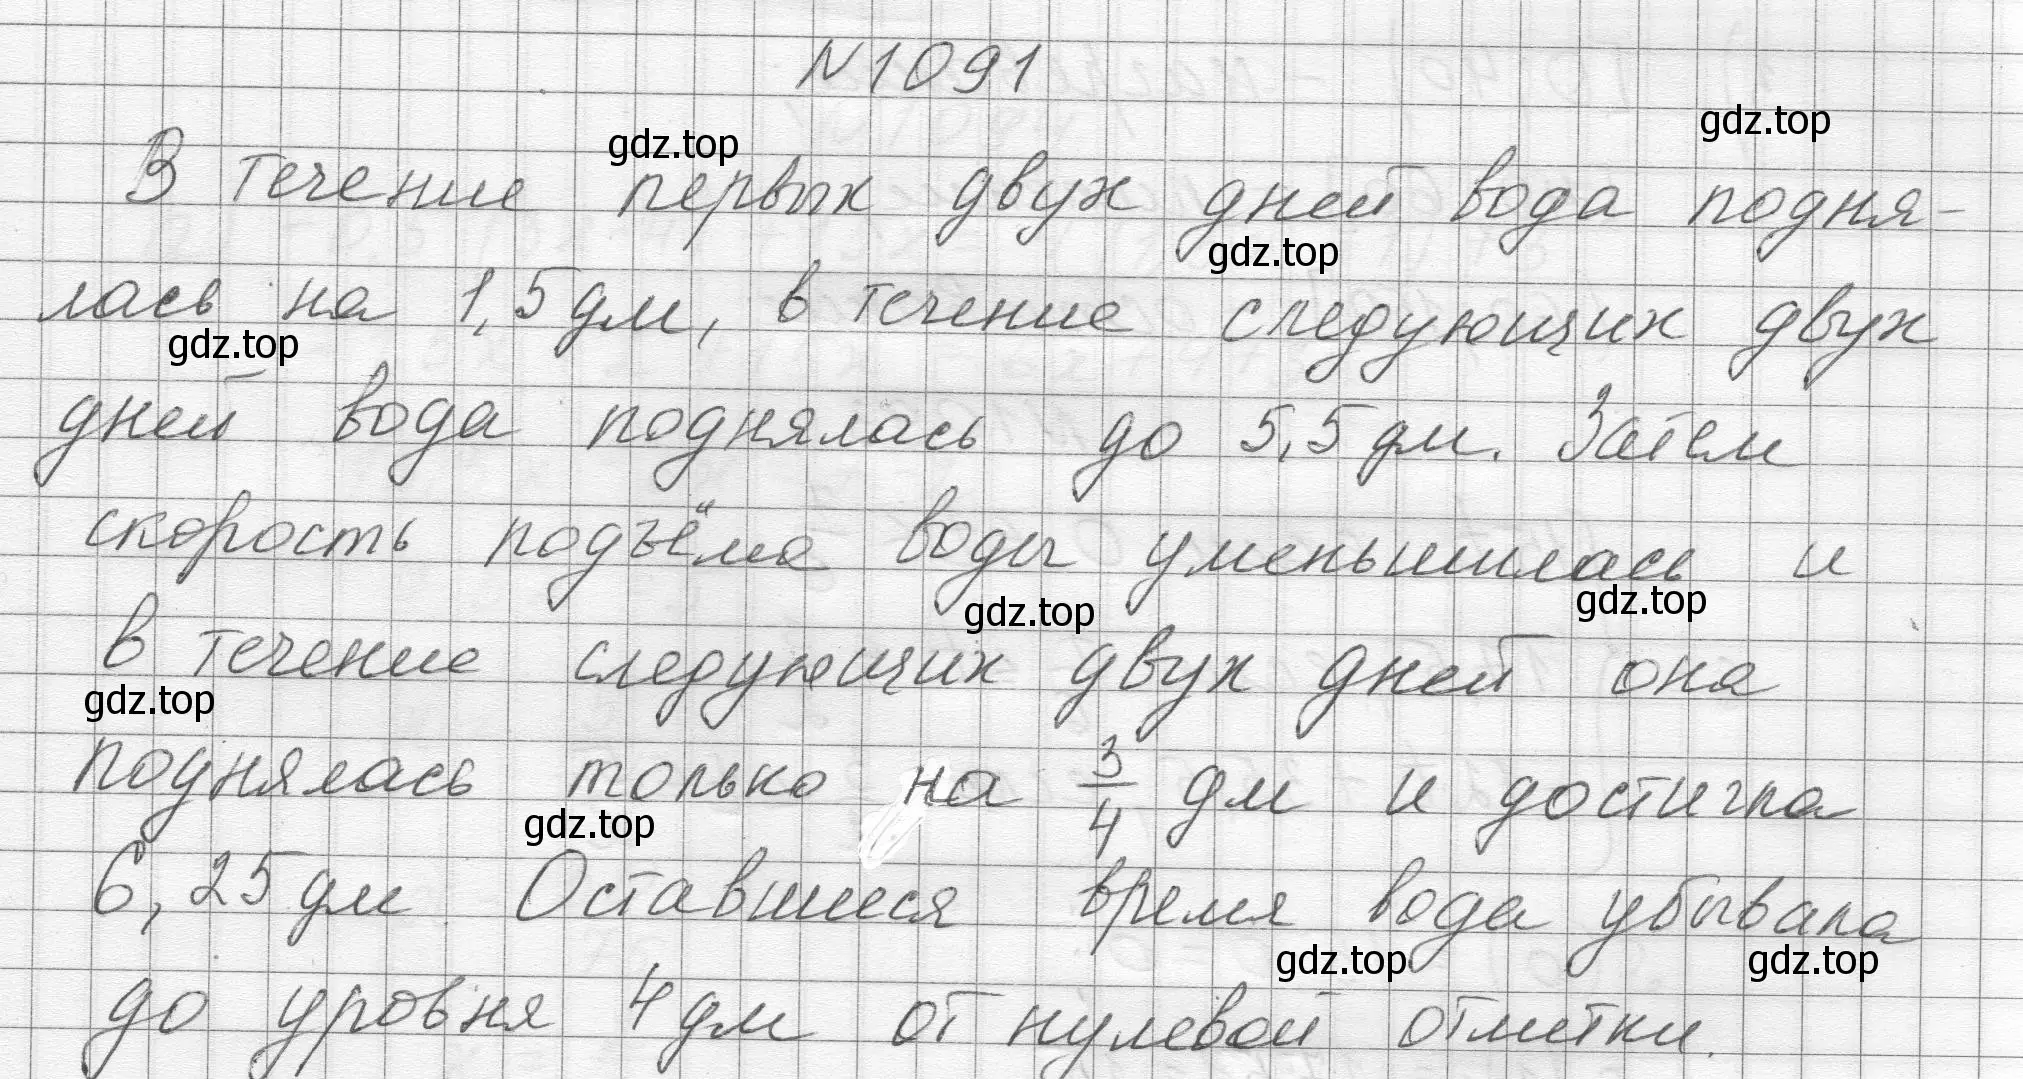 N1091
gdz.top
gdz.top
В течение первых двух дней вода подня-
gdz.top
лась на 1,5 дм, в течение следующих двух
gdz.top
дней вода поднялась до 5,5 дм. Затем
скорость подъёма воды уменьшилась и
gdz.top
gdz.top
в течение следующих двух дней она
gdz.top
поднялась только на 3/4 дм и достигла
gdz.top
6,25 дм Оставшиеся время вода убывала
gdz.top
gdz.top
до уровня 4 дм от нулевой отметки.